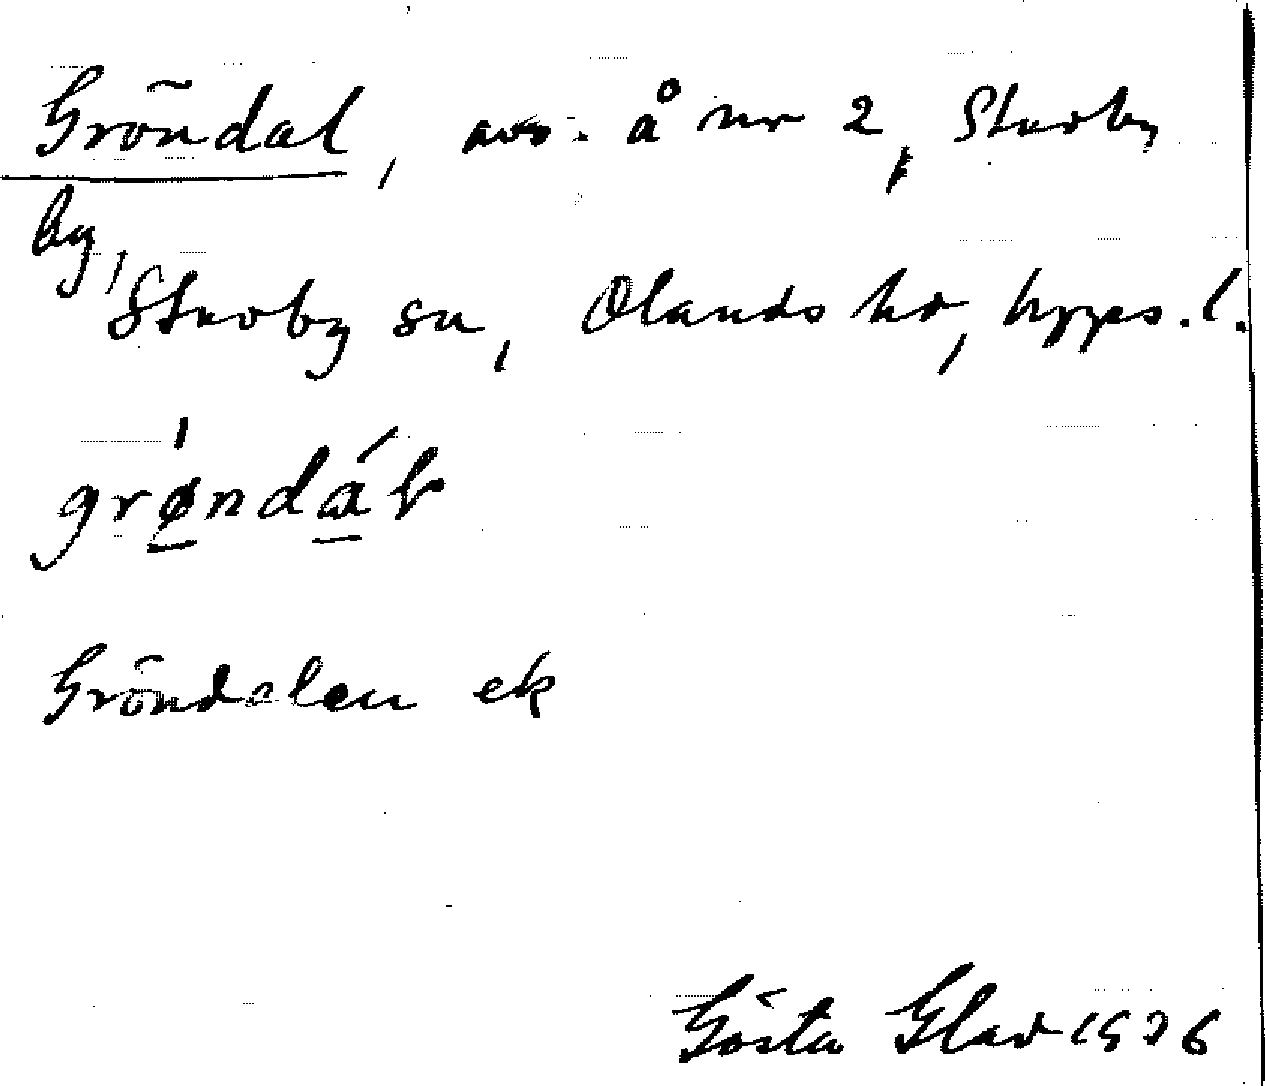 Gröndal, avs. å nr 2, Stavby
by, Stavby sn, Olands hd, Upps. l.
grøndál
Gröndalen ek
Gösta Glad 1926